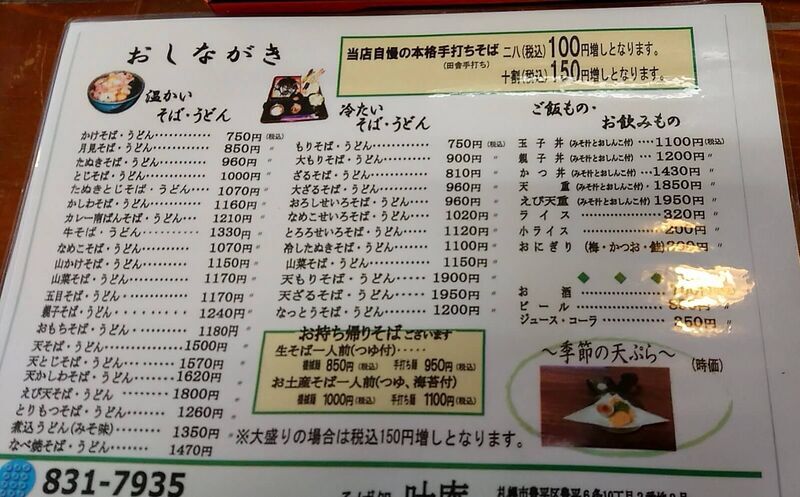 おしながき
当店自慢の本格手打ちそば 二八(税込)100円増しとなります。
(田舎手打ち) 十割(税込)150円増しとなります。
温かい
そば・うどん
かけそば・うどん………… 750円(税込)
月見そば・うどん………… 850円〃
たぬきそば・うどん……… 960円〃
とじそば・うどん………… 1000円〃
たぬきとじそば・うどん…… 1070円〃
かしわそば・うどん……… 1160円〃
カレー南ばんそば・うどん… 1210円〃
牛そば・うどん………… 1330円〃
なめこそば・うどん……… 1070円〃
山かけそば・うどん……… 1150円〃
山菜そば・うどん………… 1170円〃
五目そば・うどん………… 1170円〃
親子そば・うどん………… 1240円〃
おもちそば・うどん……… 1180円〃
天そば・うどん………… 1500円〃
天とじそば・うどん……… 1570円〃
天かしわそば・うどん…… 1620円〃
えび天そば・うどん……… 1800円〃
とりもつそば・うどん…… 1260円〃
煮込うどん(みそ味)…… 1350円〃
なべ焼そば・うどん……… 1470円
冷たい
そば・うどん
もりそば・うどん………… 750円(税込)
大もりそば・うどん……… 900円〃
ざるそば・うどん………… 810円〃
大ざるそば・うどん……… 960円〃
おろしせいろそば・うどん… 960円〃
なめこせいろそば・うどん… 1020円〃
とろろせいろそば・うどん… 1120円〃
冷したぬきそば・うどん…… 1100円〃
山菜そば・うどん………… 1150円〃
天もりそば・うどん……… 1900円〃
天ざるそば・うどん……… 1950円〃
なっとうそば・うどん…… 1200円〃
お持ち帰りそばございます
生そば一人前(つゆ付)……
機械麺 850円(税込) 手打ち麺 950円(税込)
お土産そば一人前(つゆ、海苔付)
機械麺 1000円(税込) 手打ち麺 1100円(税込)
※大盛りの場合は税込150円増しとなります。
ご飯もの・
お飲みもの
玉子丼(みそ汁とおしんこ付)…1100円(税込)
親子丼(みそ汁とおしんこ付)…1200円〃
かつ丼(みそ汁とおしんこ付)…1430円〃
天重(みそ汁とおしんこ付)・1850円〃
えび天重(みそ汁とおしんこ付)・1950円〃
ライス………………320円〃
小ライス……………200円〃
おにぎり(梅・かつお・鮭)
お酒……………
ビール……………
ジュース・コーラ………250円〃
～季節の天ぷら～(時価)
831-7935
そば処 叶庵 札幌市豊平区豊平6条10丁目